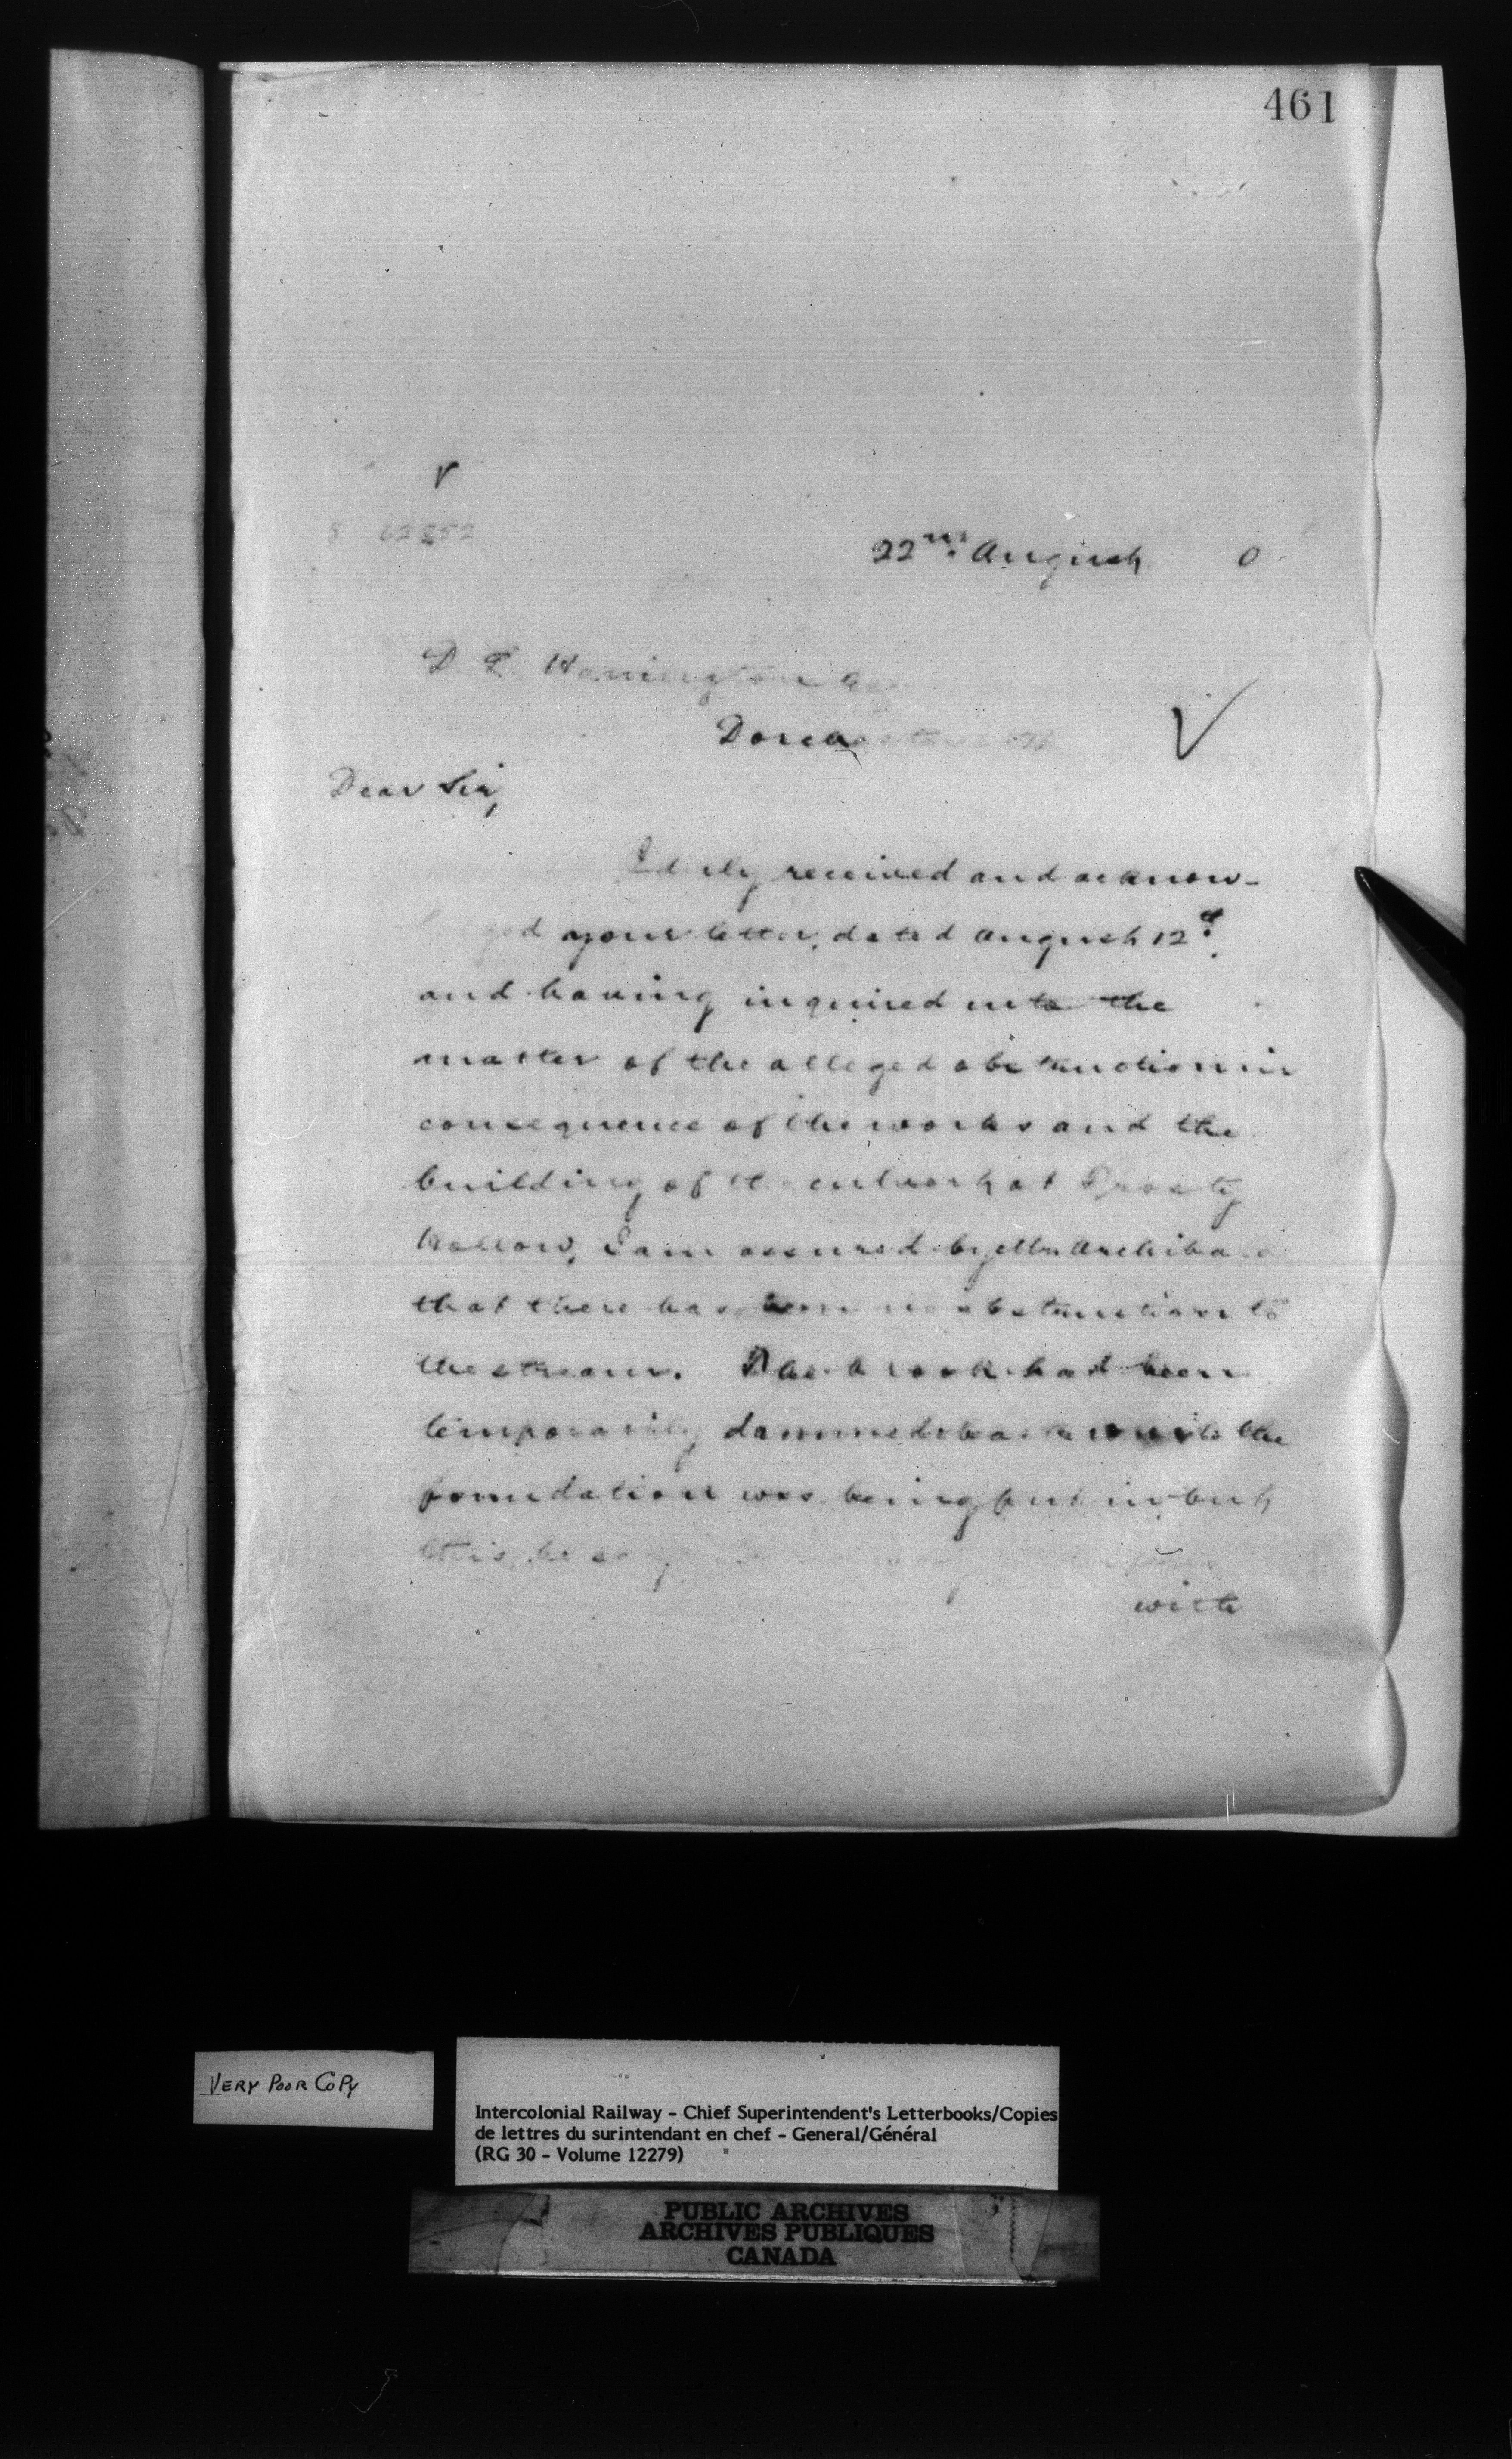 461
62552
22nd August 0
D. L. Hanington Esq
Dorchester NB
Dear Sir,
I duly received and acknow-
ged your letter, dated August 12th
and having inquired into the
matter of the alleged obstruction in
consequence of the works and the
building of the culvert at
Hollow, I am assured by Mr Archibald
that there has been no obstruction to
the stream. The brook had been
temporarily dammed back while the
foundation was being put in, but
this, he says
with
VERY POOR COPY
Intercolonial Railway - Chief Superintendent's Letterbooks/Copies
de lettres du surintendant en chef - General/Général
(RG 30 - Volume 12279)
PUBLIC ARCHIVES
ARCHIVES PUBLIQUES
CANADA